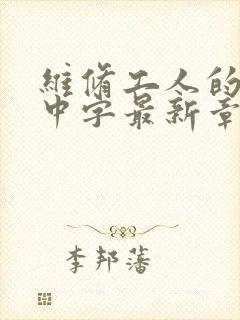 維脩工人的
中字最新章
李邦藩